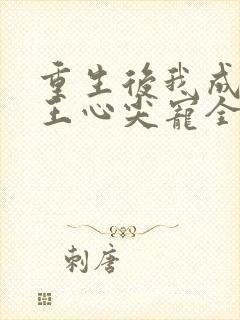 重生後我成
王心尖寵全
刺唐